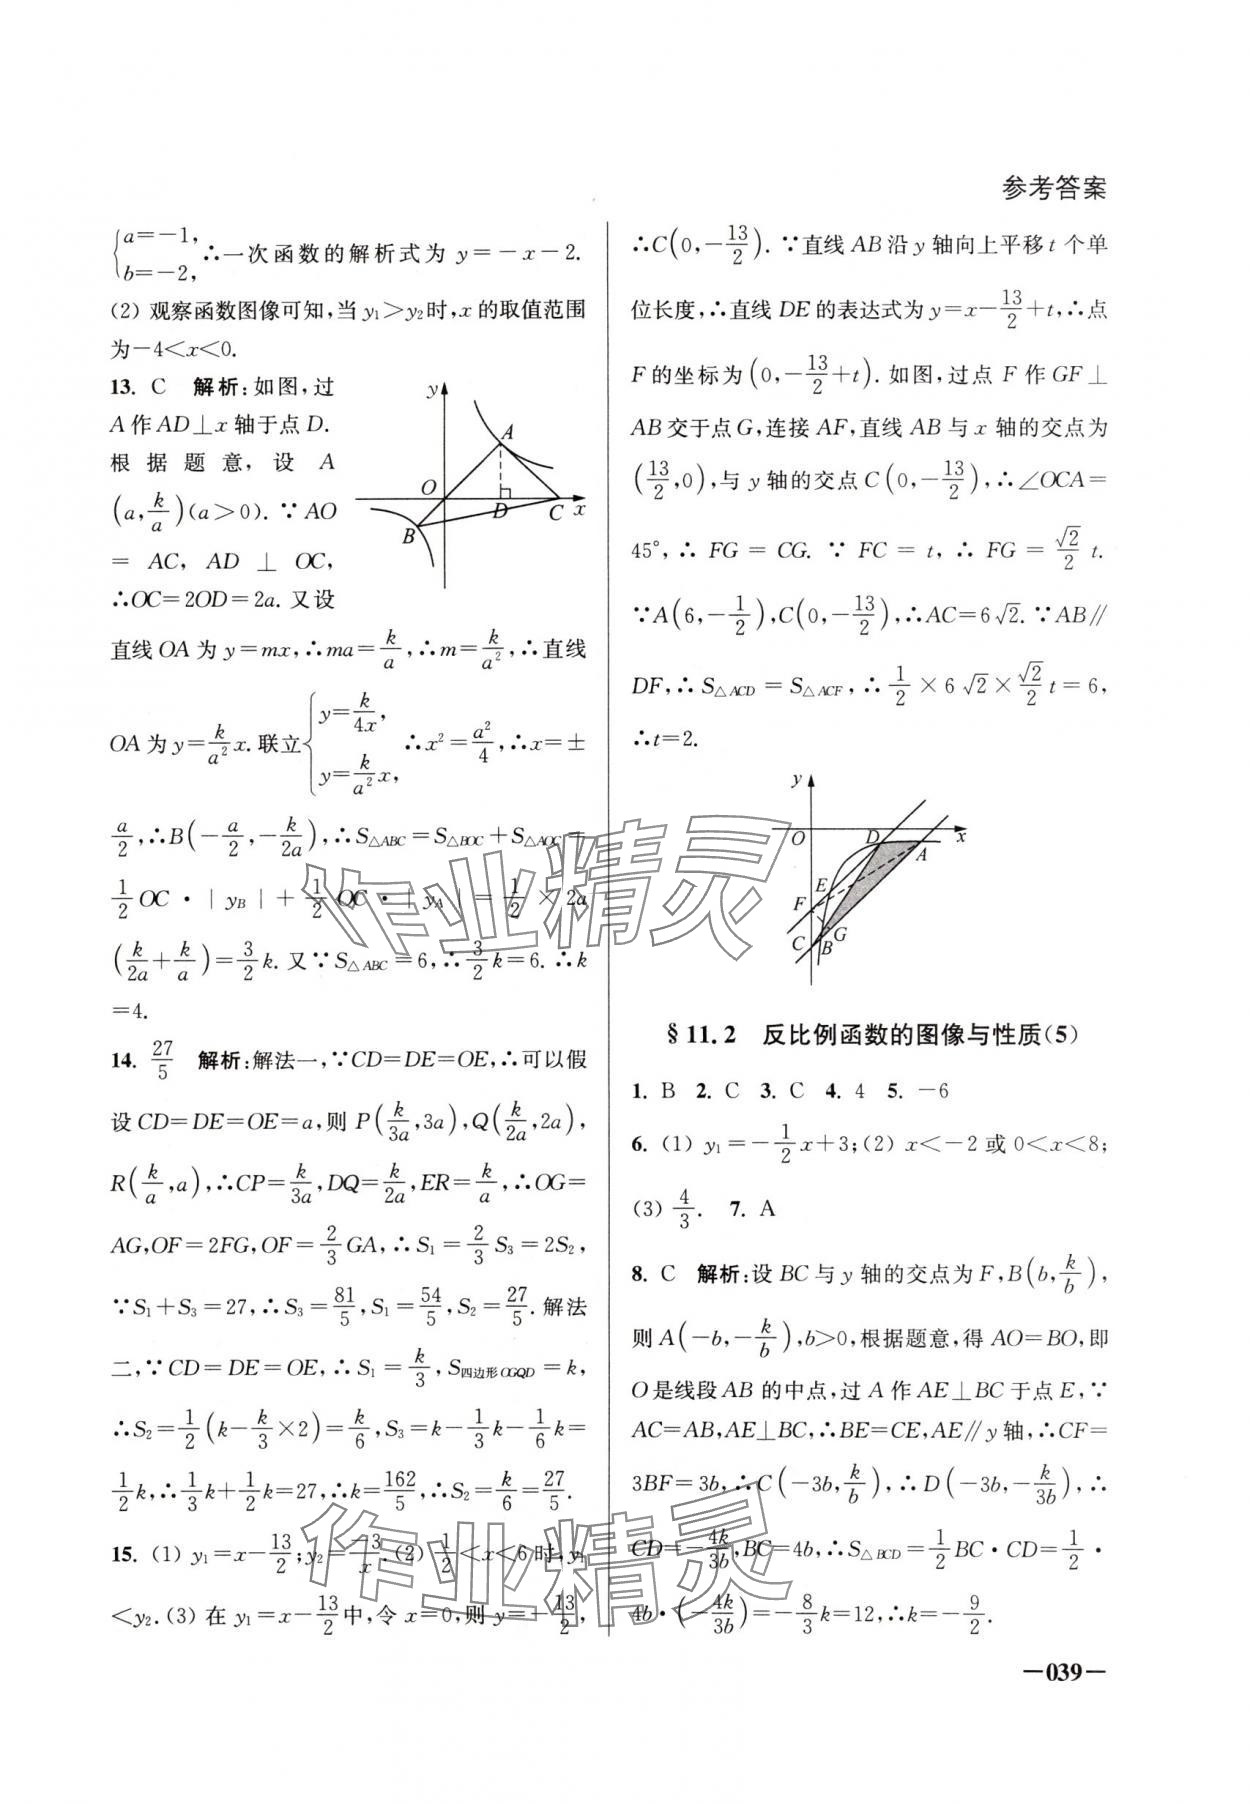 参考答案
{a=-1, b=-2, ∴一次函数的解析式为 y=-x-2.
(2) 观察函数图像可知,当 y₁>y₂时,x 的取值范围
为-4<x<0.
13. C 解析:如图,过
A 作 AD⊥x 轴于点 D.
根据题意,设 A
(a, k/a)(a>0). ∵AO
=AC, AD⊥OC,
∴OC=2OD=2a. 又设
y
A
O
D
C
x
B
直线 OA 为 y=mx,∴ma=k/a,∴m=k/a²,∴直线
OA 为 y=k/a² x. 联立{y=k/4x, y=k/a² x, ∴x²=a²/4,∴x=±
a/2,∴B(-a/2, -k/2a),∴S△ABC=S△BOC+S△AOC=
1/2 OC·|yB|+1/2 OC·|yA|=1/2×2a
(k/2a+k/a)=3/2 k. 又∵S△ABC=6,∴3/2 k=6. ∴k
=4.
14. 27/5 解析:解法一,∵CD=DE=OE,∴可以假
设 CD=DE=OE=a,则 P(k/3a, 3a),Q(k/2a, 2a),
R(k/a, a),∴CP=k/3a, DQ=k/2a, ER=k/a,∴OG=
AG,OF=2FG,OF=2/3 GA,∴S₁=2/3 S₃=2S₂,
∵S₁+S₃=27,∴S₃=81/5, S₁=54/5, S₂=27/5. 解法
二,∵CD=DE=OE,∴S₁=k/3, S四边形OGQD=k,
∴S₂=1/2(k-k/3×2)=k/6, S₃=k-1/3 k-1/6 k=
1/2 k,∴1/3 k+1/2 k=27,∴k=162/5,∴S₂=k/6=27/5.
15. (1) y₁=x-13/2; y₂=-3/x. (2) 1/2<x<6时,y₁
<y₂. (3) 在 y₁=x-13/2中,令 x=0,则 y=-13/2,
∴C(0, -13/2). ∵直线 AB 沿 y 轴向上平移 t 个单
位长度,∴直线 DE 的表达式为 y=x-13/2+t,∴点
F 的坐标为(0, -13/2+t). 如图,过点 F 作 GF⊥
AB 交于点 G,连接 AF,直线 AB 与 x 轴的交点为
(13/2, 0),与 y 轴的交点 C(0, -13/2),∴∠OCA=
45°,∴FG=CG. ∵FC=t,∴FG=√2/2 t.
∵A(6, -1/2),C(0, -13/2),∴AC=6√2. ∵AB∥
DF,∴S△ACD=S△ACF,∴1/2×6√2×√2/2 t=6,
∴t=2.
y
O
D
A
x
E
F
G
C
B
§11.2 反比例函数的图像与性质(5)
1. B 2. C 3. C 4. 4 5. -6
6. (1) y₁=-1/2 x+3;(2) x<-2 或 0<x<8;
(3) 4/3. 7. A
8. C 解析:设 BC 与 y 轴的交点为 F,B(b, k/b),
则 A(-b, -k/b),b>0,根据题意,得 AO=BO,即
O 是线段 AB 的中点,过 A 作 AE⊥BC 于点 E,∵
AC=AB,AE⊥BC,∴BE=CE,AE∥y 轴,∴CF=
3BF=3b,∴C(-3b, k/b),∴D(-3b, -k/3b),∴
CD=-4k/3b, BC=4b,∴S△BCD=1/2 BC·CD=1/2·
4b·(-4k/3b)=-8/3 k=12,∴k=-9/2.
作业精灵
作业精灵
—039—